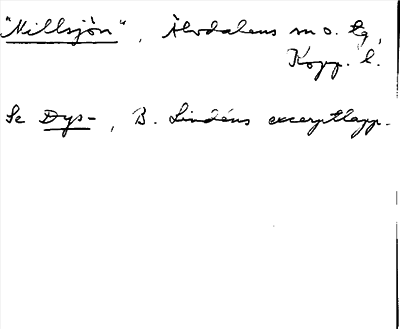 "Millsjön", Älvdalens m o. tg,
Kopp. l.
Se Dys-, B. Lindéns excerptlapp.